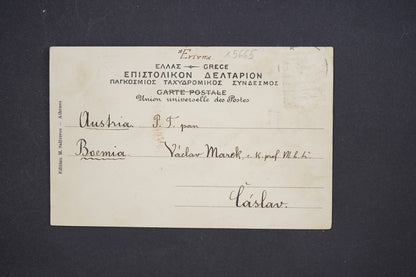 Έντυπα 15665
ΕΛΛΑΣ GRÈCE
ΕΠΙΣΤΟΛΙΚΟΝ ΔΕΛΤΑΡΙΟΝ
ΠΑΓΚΟΣΜΙΟΣ ΤΑΧΥΔΡΟΜΙΚΟΣ ΣΥΝΔΕΣΜΟΣ
CARTE POSTALE
Union universelle des Postes
Austria. P. T. pan
Boemia. Václav Marek,
Čáslav.